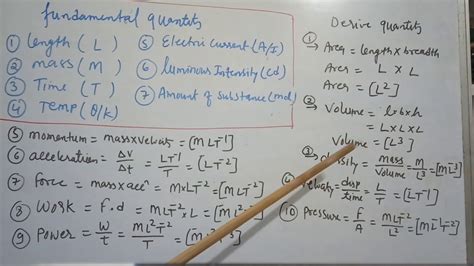 fundamental quantets
① length (L)
② mass (M)
③ Time (T)
④ Temp (θ/k)
⑤ Electric current (A/I)
⑥ luminous Intensity (cd)
⑦ Amount of substance (mol)
Desive quantets
① Area = length x breadth
Area = L x L
Area = [L²]
② Volume = l x b x h
= L x L x L
Volume = [L³]
③ = mass/volume = M/L³ = [ML⁻³]
④ = disp/time = L/T = [LT⁻¹]
⑤ momentum = mass x = [MLT⁻¹]
⑥ = ΔV/Δt = LT⁻¹/T = [LT⁻²]
⑦ force = mass x = M x LT⁻² = [MLT⁻²]
⑧ Work = F.d = MLT⁻² x L =
⑨ Power = W/t = ML²T⁻²/T =
⑩ Pressure = F/A = MLT⁻²/L² = [ML⁻¹T⁻²]